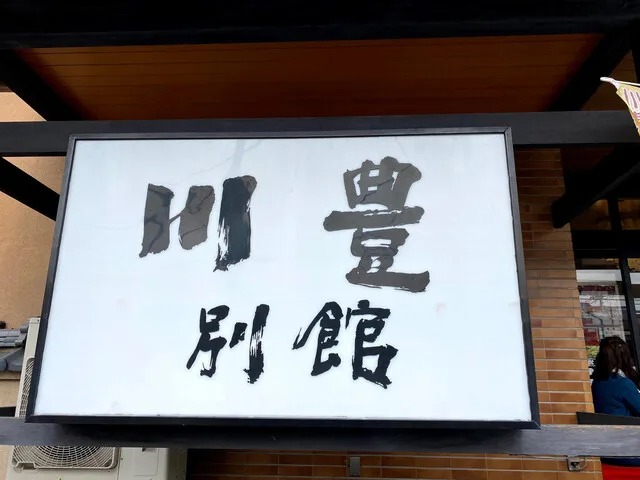 川豊
別館